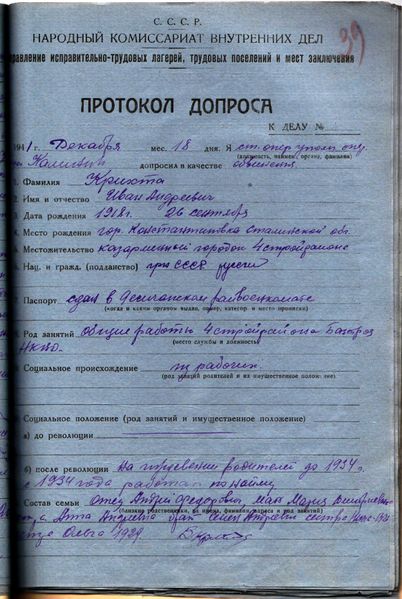 39
С. С. С. Р.
НАРОДНЫЙ КОМИССАРИАТ ВНУТРЕННИХ ДЕЛ
правление исправительно-трудовых лагерей, трудовых поселений и мест заключения
ПРОТОКОЛ ДОПРОСА
К ДЕЛУ №
1941 г. Декабря мес. 18 дня. Я ст. опер уполн
(должность, наимен. органа, фамилия)
допросил в качестве обвиняем
1. Фамилия Крихта
2. Имя и отчество Иван Андреевич
3. Дата рождения 1918 г. 26 сентября
4. Место рождения гор. Константиновка Сталинской обл.
5. Местожительство казарменный городок 4 стройрайона
6. Нац. и гражд. (подданство) гр СССР русский
7. Паспорт сдан в райвоенкомате
(когда и каким органом выдан, номер, категор. и место прописки)
8. Род занятий общие работы 4 стройрайона
НКВД.
(место службы и должность)
9. Социальное происхождение из рабочих.
(род занятий родителей и их имущественное положение)
Социальное положение (род занятий и имущественное положение)
а) до революции
б) после революции На иждевении родителей до 1934 г.
с 1934 года работал по найму
Состав семьи отец Андрей Федорович, мать Мария
(близкие родственники, их имена, фамилии, адреса и род занятий)
Анна Андреевна брат Андреевич сестра
Ольга 1929